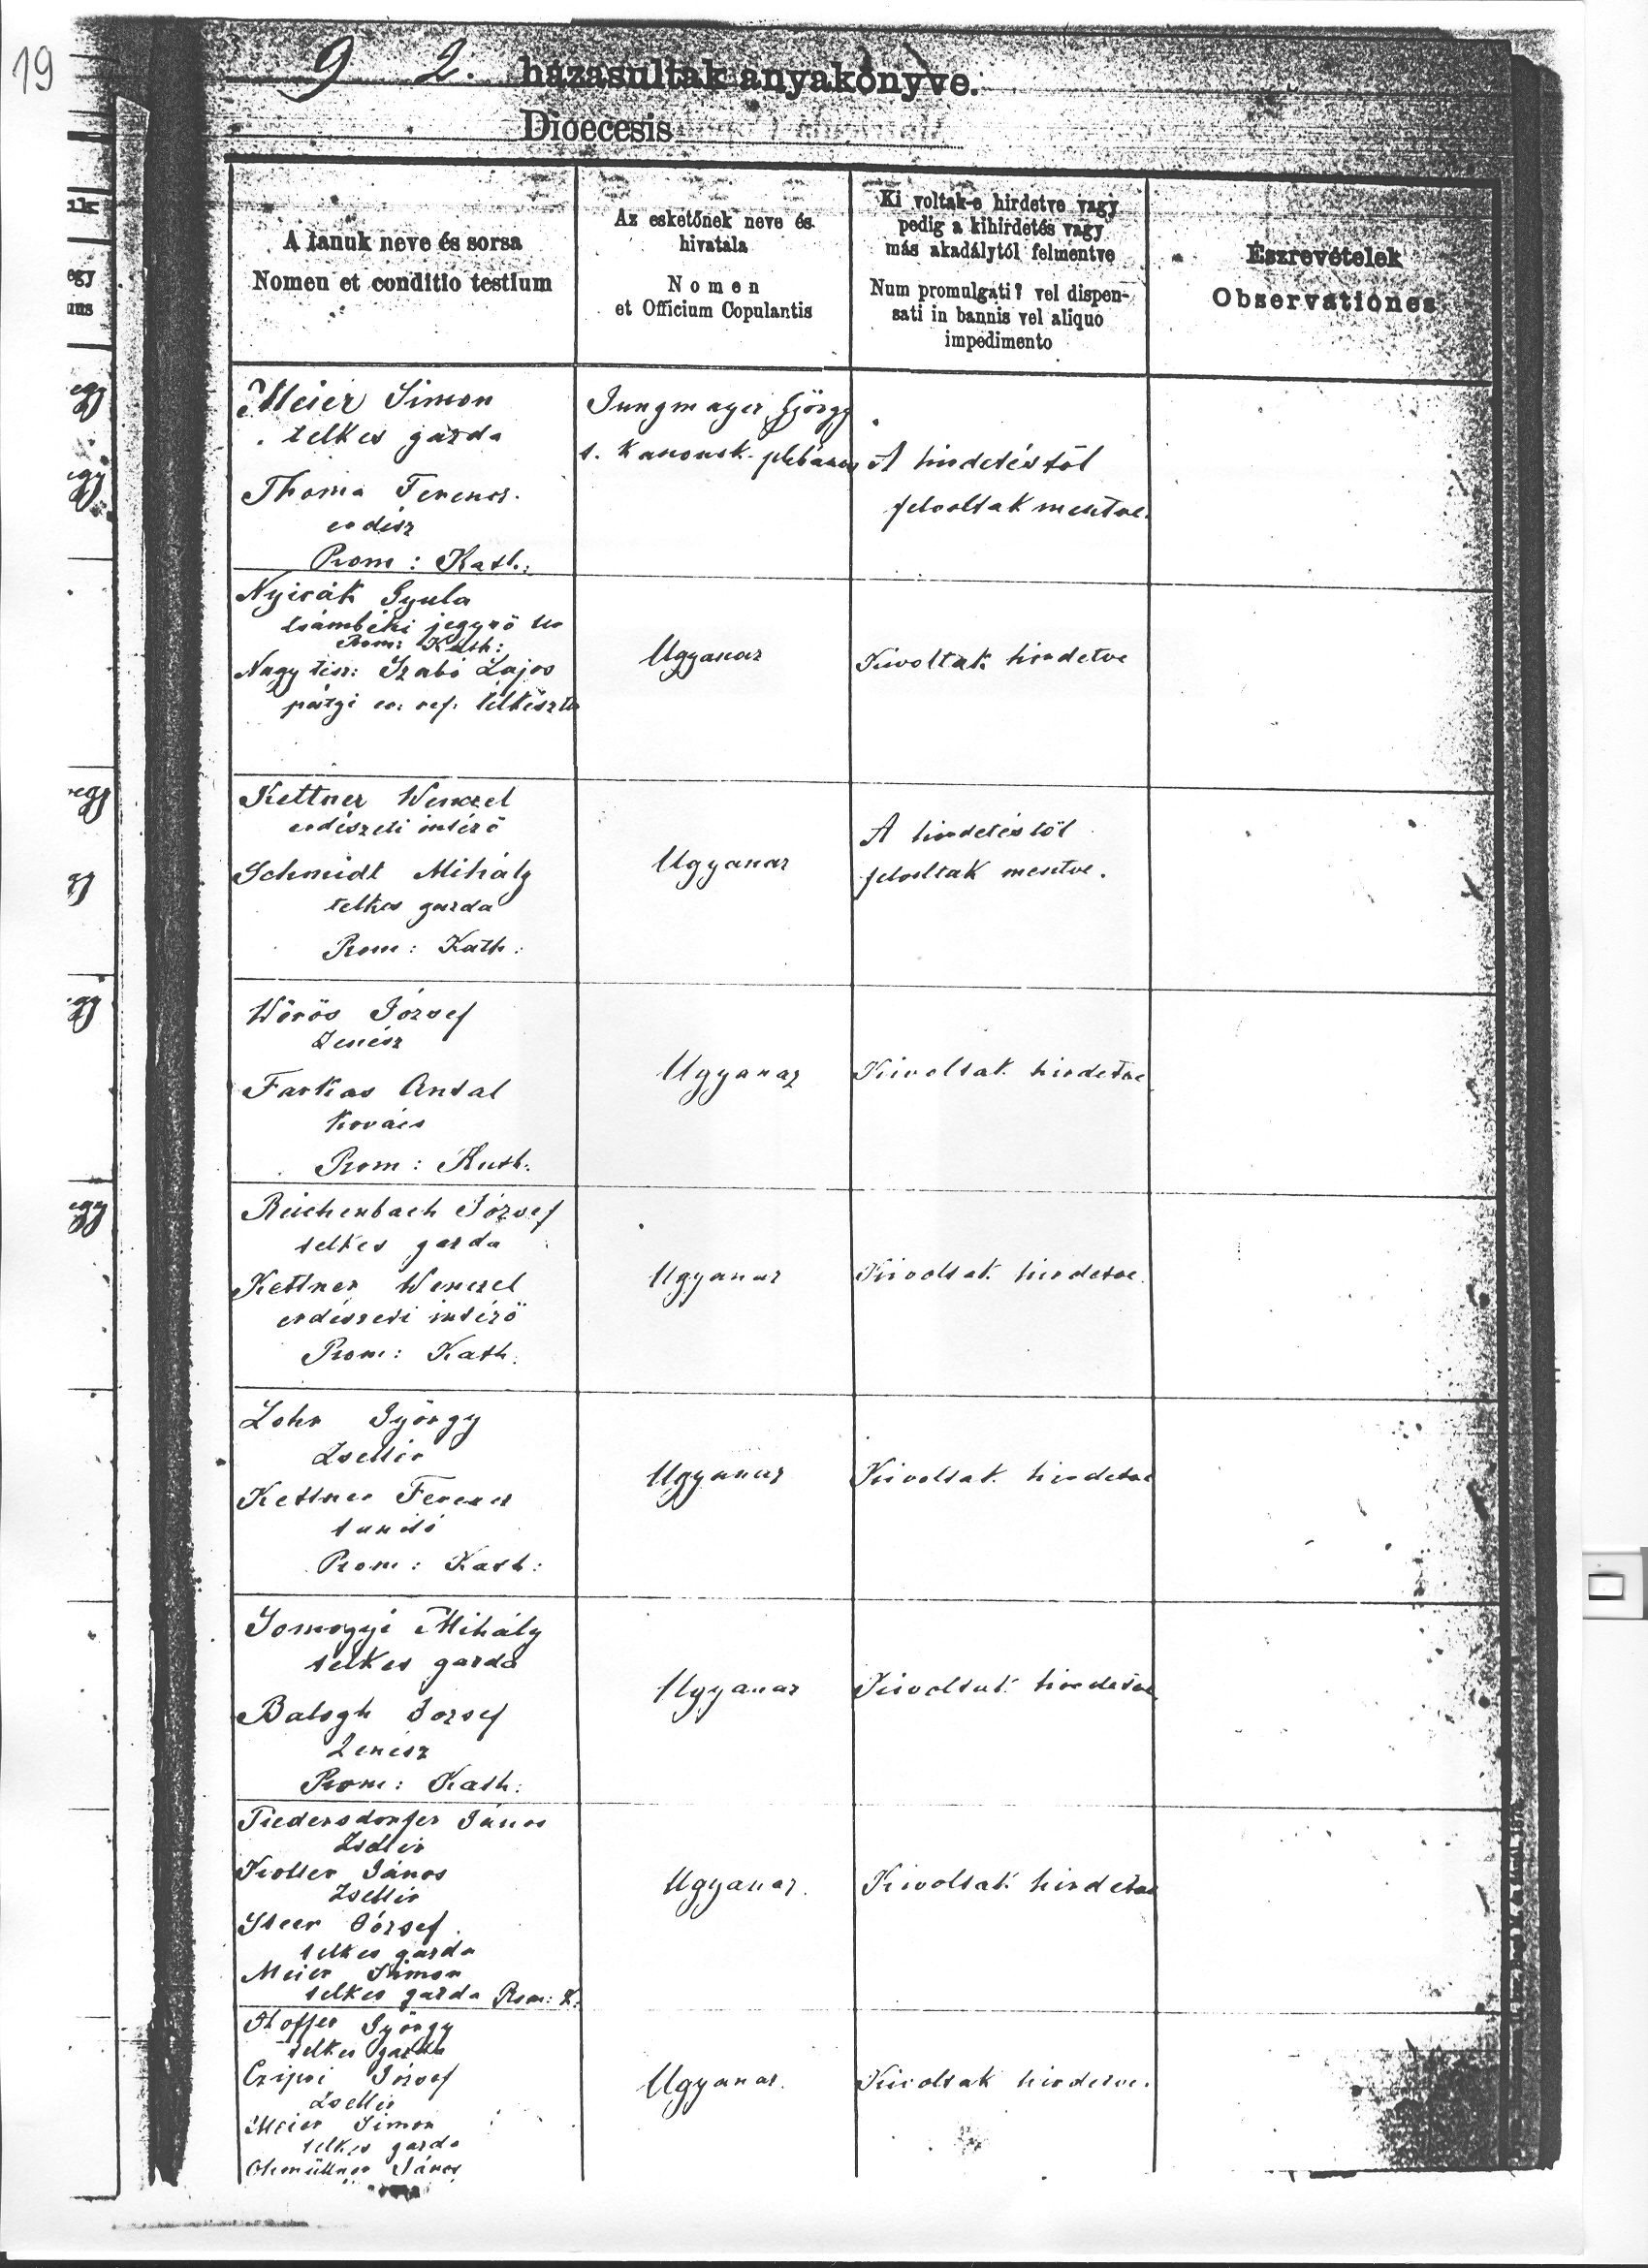 19
9 2. házasultak anyakönyve.
Dioecesis
A tanuk neve és sorsa
Nomen et conditio testium
Az esketőnek neve és
hivatala
Nomen
et Officium Copulantis
Ki voltak-e hirdetve vagy
pedig a kihirdetés vagy
más akadálytól felmentve
Num promulgati? vel dispen-
sati in bannis vel aliquo
impedimento
Észrevételek
Observationes
Meier Simon
telkes gazda
Thoma Ferencz
erdész
Rom: Kath:
Jungmayer György
t. kanonok plébános
A hirdetéstől
felvoltak mentve.
Nyirák Gyula
Rom: Kath:
Nagy tisz: Szabó Lajos
ev. ref.
Ugyanaz
Kivoltak hirdetve
Kettner Wenczel
erdészeti intéző
Schmidt Mihály
telkes gazda
Rom: Kath:
Ugyanaz
A hirdetéstől
felvoltak mentve.
Wörös József
Zenész
Farkas Antal
Kovács
Rom: Kath:
Ugyanaz
Kivoltak hirdetve
Reichenbach József
telkes gazda
Kettner Wenczel
erdészeti intéző
Rom: Kath:
Ugyanaz
Kivoltak hirdetve.
Lohr György
Zsellér
Kettner Ferencz
tanító
Rom: Kath:
Ugyanaz
Kivoltak hirdetve
Somogyi Mihály
telkes gazda
Balogh József
Zenész
Rom: Kath:
Ugyanaz
Kivoltak hirdetve
Tiedersdorfer János
Zsellér
Koller János
Zsellér
József
telkes gazda
Meier Simon
telkes gazda Rom: K.
Ugyanaz.
Kivoltak hirdetve
Hoffer György
telkes gazda
József
Zsellér
Meier Simon
telkes gazda
János
Ugyanaz.
Kivoltak hirdetve.